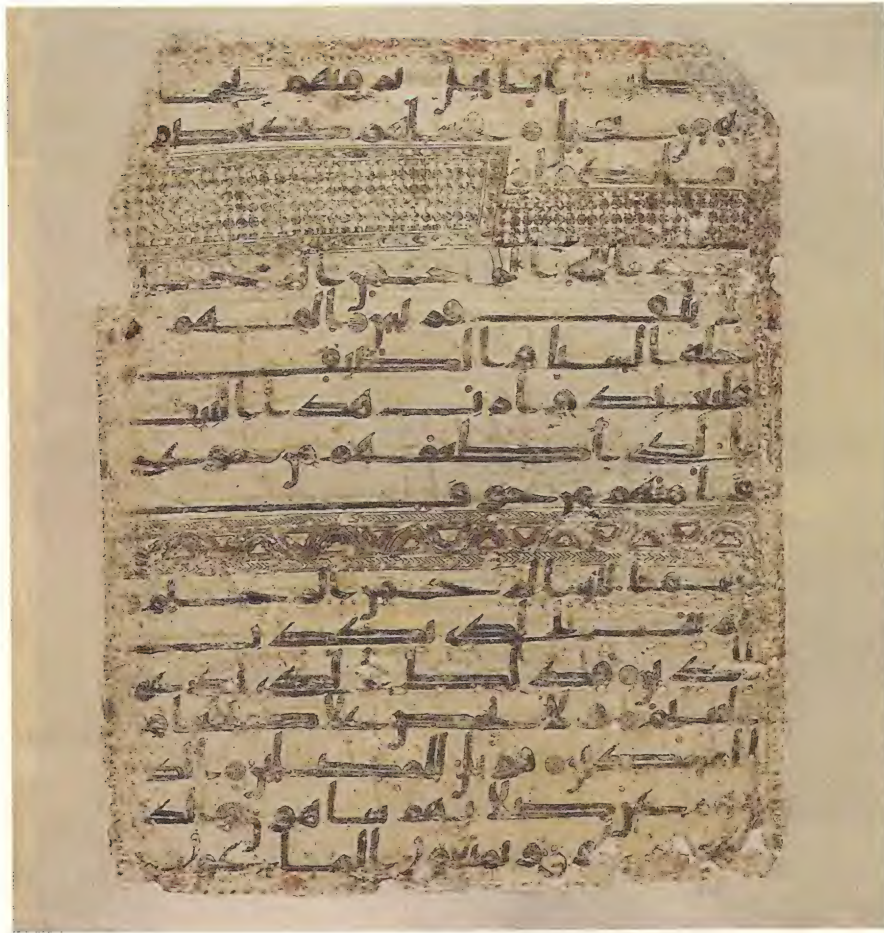 ابابيل ترميهم بحجا
رة من سجيل فجعلهم كعصف
ماكول
بسم الله الرحمن الرحيم
لايلف قريش الفهم ر
حلة الشتا و الصيف
فليعبدوا رب هذا البيت
الذي اطعمهم من جوع
و امنهم من خوف
بسم الله الرحمن الرحيم
اريت الذي يكذب
بالدين فذلك الذي يدع
اليتيم و لا يحض على طعام
المسكين فويل للمصلين الذ
ين هم عن صلاتهم ساهون الذ
ين هم يراون و يمنعون الماعون